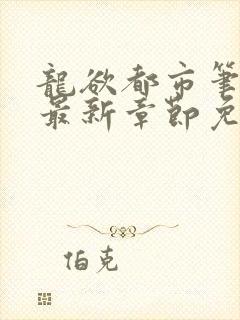 龍欲都市筆
最新章節免
伯克